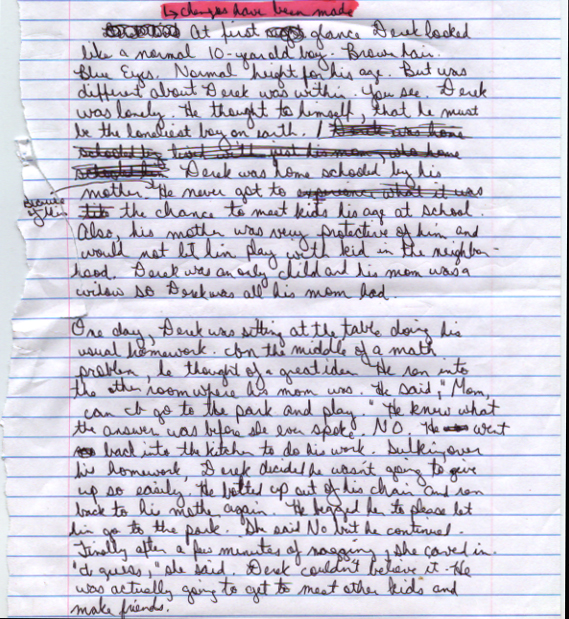 ↳ changes have been made
At first glance Derek looked
like a normal 10-year old boy. Brown hair.
Blue Eyes. Normal height for his age. But was
different about Derek was within. You see, Derek
was lonely. He thought to himself, that he must
be the loneliest boy on earth. / Derek was home
schooled by lived with just his mom, who home
schooled him Derek was home schooled by his
mother. He never got to experience what it was
Because of this
the chance to meet kids his age at school.
Also, his mother was very protective of him and
would not let him play with kid in the neighbor-
hood. Derek was an only child and his mom was a
widow so Derek was all his mom had.
One day, Derek was sitting at the table doing his
usual homework. In the middle of a math
problem, he thought of a great idea. He ran into
the other room where his mom was. He said, "Mom,
can I go to the park and play." He knew what
the answer was before she ever spoke, NO. He went
back into the kitchen to do his work. Sulking over
his homework, Derek decided he wasn't going to give
up so easily. He bolted up out of his chair and ran
back to his mother again. He begged her to please let
him go to the park. She said No but he continued.
Finally after a few minutes of nagging, she caved in.
"I guess," she said. Derek couldn't believe it. He
was actually going to get to meet other kids and
make friends.